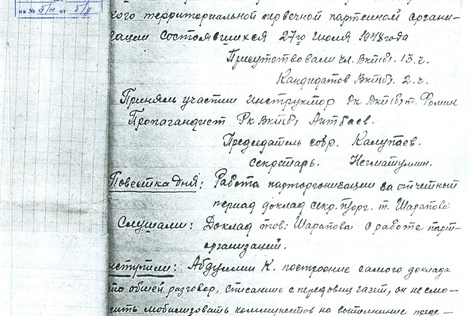 кого территориальной первичной партийной органи-
зации состоявшихся 27го июля 1948 года
Присутствовали чл. ВКП(б). 13. ч.
Кандидатов ВКП(б). 2. ч.
Приняль участии инструктор Рк ВКП(б) т. Фомин
Пропагандист Рк ВКП(б) Аитбаев.
Председатель собр.
секретарь. Негматулин.
Повестка дня: Работа парторганизации за отчетный
период доклад секр. т. Шарапова
Слушали: Доклад тов: Шарапова о работе парт-
организации.
Абдуллин К. построение самого доклада
это общей разговор, списание с передовиц газет, он не смо-